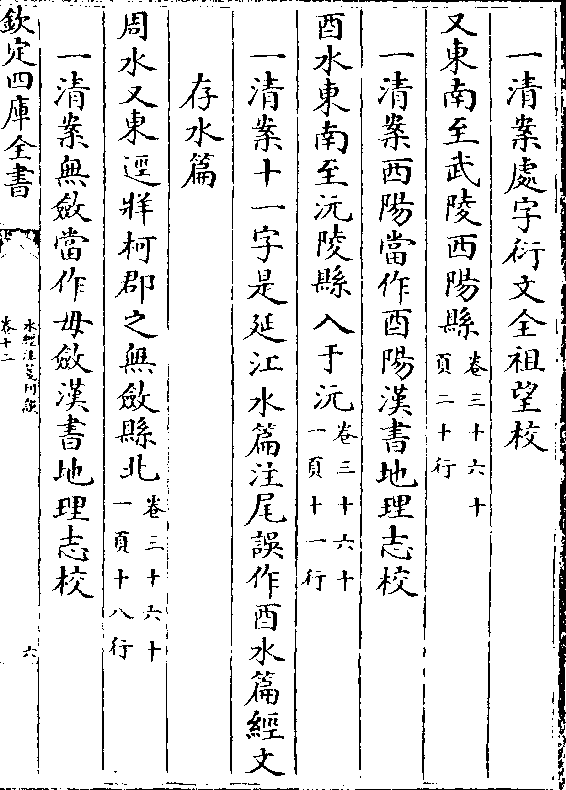 一清案處字衍文全祖望校
又東南至武陵酉陽縣卷三十六十
頁二十行
一清案西陽當作酉陽漢書地理志校
酉水東南至沅陵縣入于沅卷三十六十
一頁十一行
一清案十一字是延江水篇注尾誤作酉水篇經文
存水篇
周水又東逕牂柯郡之無斂縣北卷三十六十
一頁十八行
一清案無斂當作毋斂漢書地理志校
欽定四庫全書
水經注箋刊誤
卷十二
六